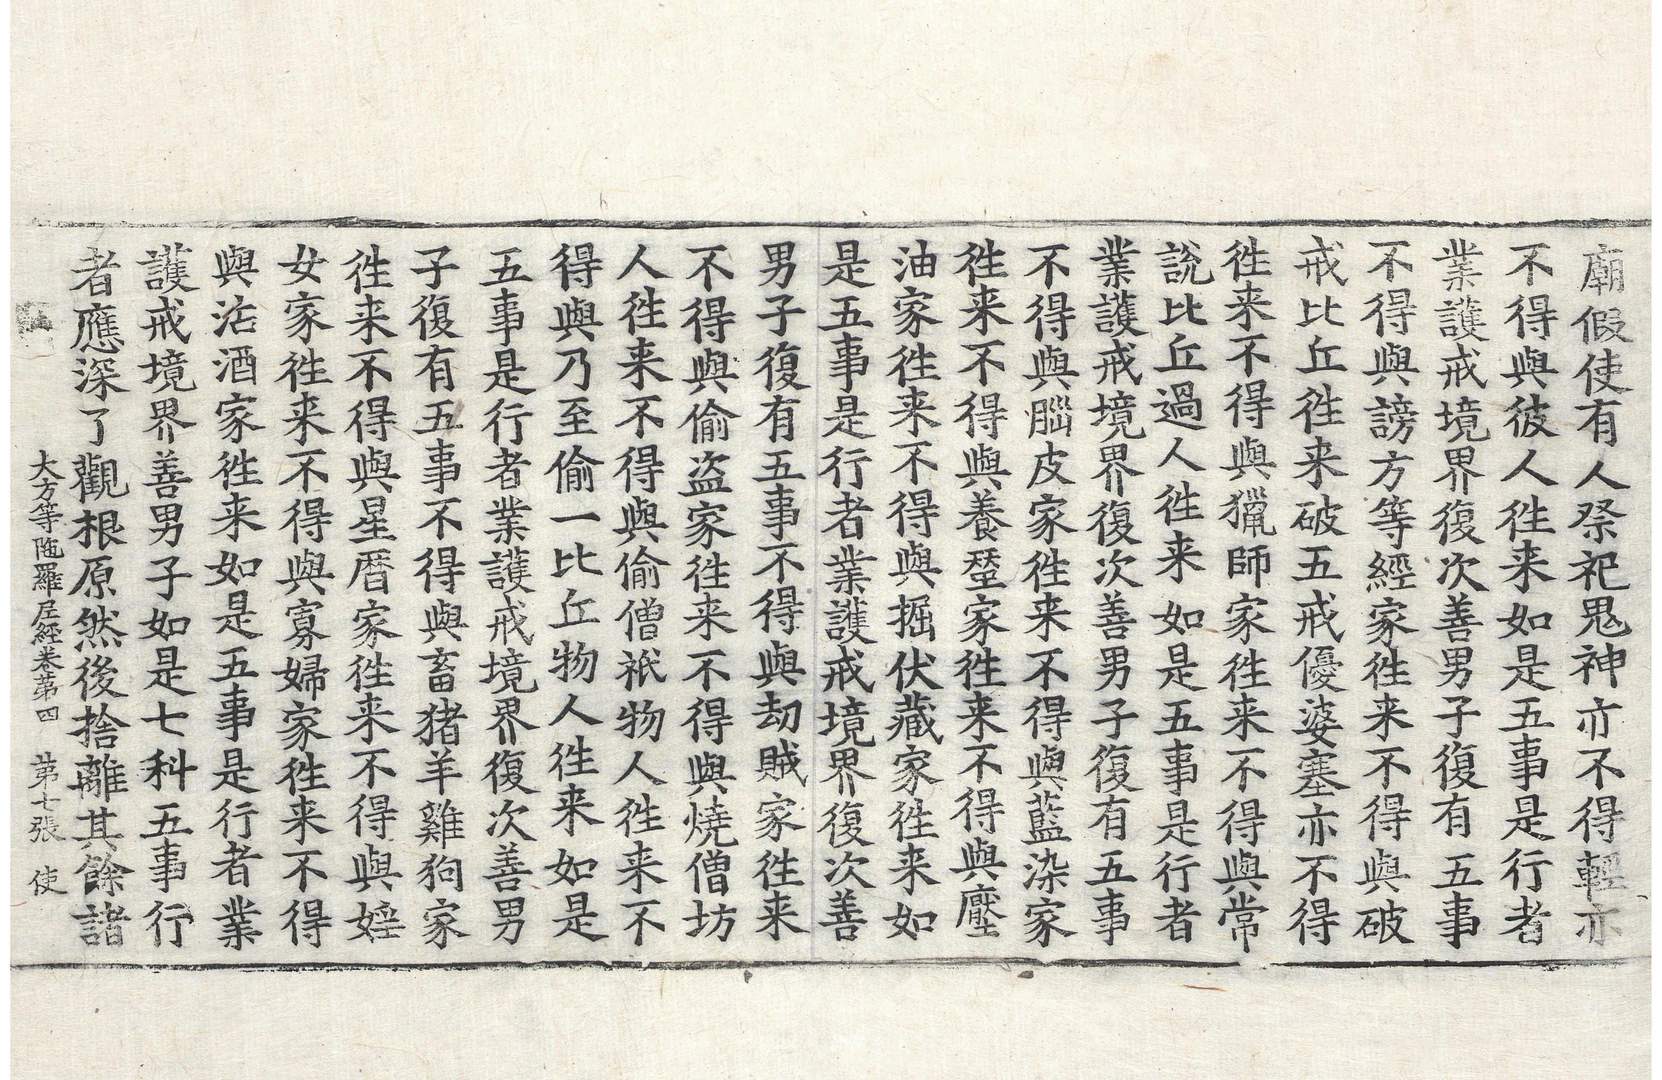 廟假使有人祭祀鬼神亦不得輕亦
不得與彼人徃来如是五事是行者
業護戒境界復次善男子復有五事
不得與謗方等經家徃来不得與破
戒比丘徃来破五戒優婆塞亦不得
徃来不得與獵師家徃来不得與常
說比丘過人徃来如是五事是行者
業護戒境界復次善男子復有五事
不得與腦皮家徃来不得與藍染家
徃来不得與養蝅家徃来不得與壓
油家徃来不得與掘伏藏家徃来如
是五事是行者業護戒境界復次善
男子復有五事不得與劫賊家徃来
不得與偷盗家徃来不得與燒僧坊
人徃来不得與偷僧祇物人徃来不
得與乃至偷一比丘物人徃来如是
五事是行者業護戒境界復次善男
子復有五事不得與畜猪羊雞狗家
徃来不得與星曆家徃来不得與婬
女家徃来不得與寡婦家徃来不得
與沽酒家徃来如是五事是行者業
護戒境界善男子如是七科五事行
者應深了觀根原然後捨離其餘諸
大方等陁羅尼經卷第四 第七張 使